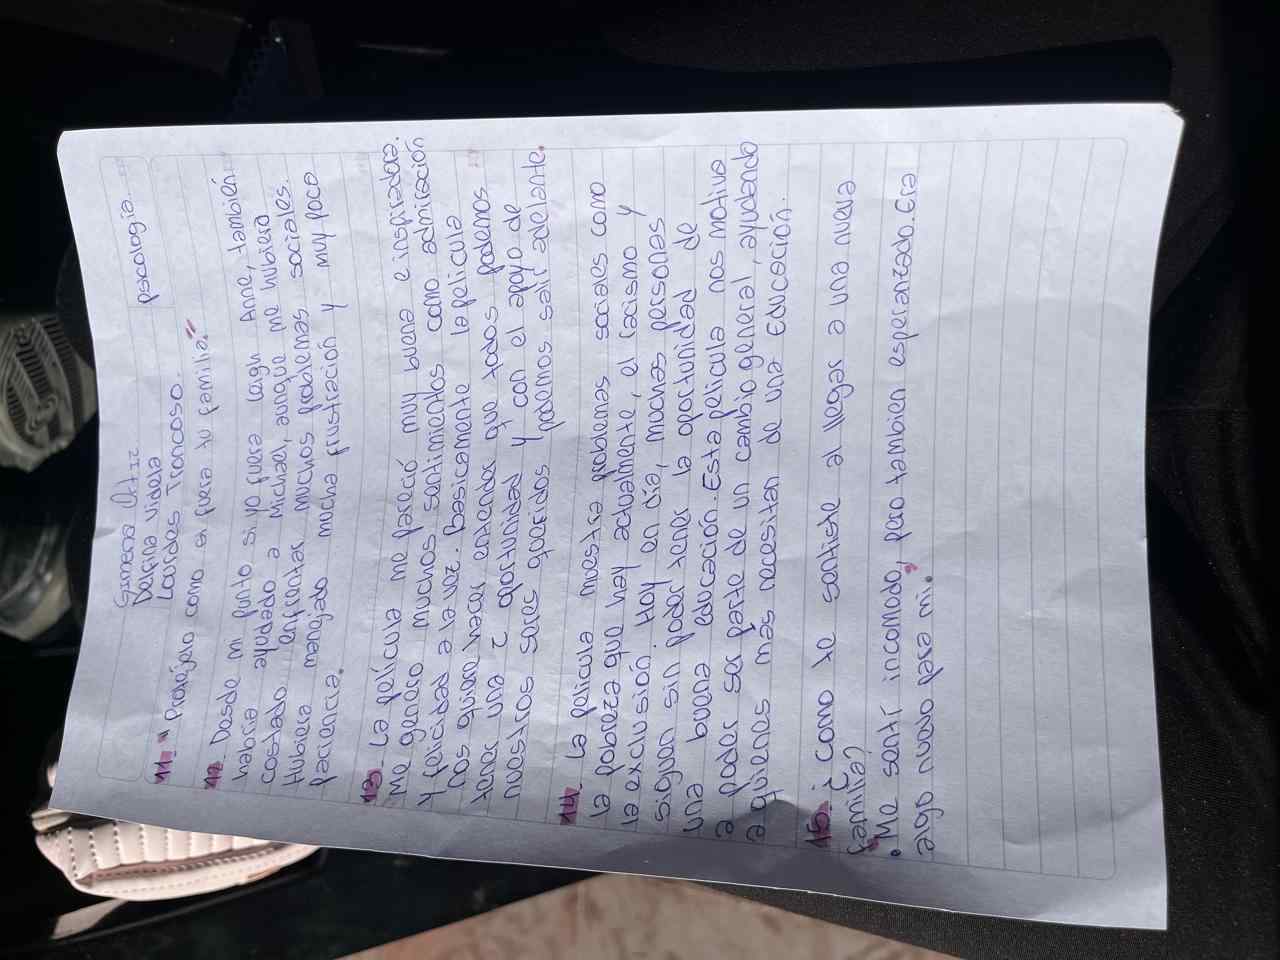 Gimena Ortiz
Delfina Videla
Lourdes Troncoso.
psicología.
11. "Protéjelo como si fuera tu familia."
12. Desde mi punto si yo fuera Leigh Anne, también
habría ayudado a Michael, aunque me hubiera
costado enfrentar muchos problemas sociales.
Hubiera manejado mucha frustración y muy poca
paciencia.
13. La película me pareció muy buena e inspiradora.
Me generó muchos sentimientos como admiración
y felicidad a la vez. Basicamente la película
nos quiere hacer entender que todos podemos
tener una 2 oportunidad y con el apoyo de
nuestros seres queridos podemos salir adelante.
14. La película muestra problemas sociales como
la pobreza que hay actualmente, el racismo y
la exclusión. Hoy en día, muchas personas
siguen sin poder tener la oportunidad de
una buena educación. Esta película nos motiva
a poder ser parte de un cambio general, ayudando
a quienes más necesitan de una Educación.
15. ¿Cómo te sentiste al llegar a una nueva
familia?
• Me sentí incomodo, pero tambien esperanzado. Era
algo nuevo para mi.